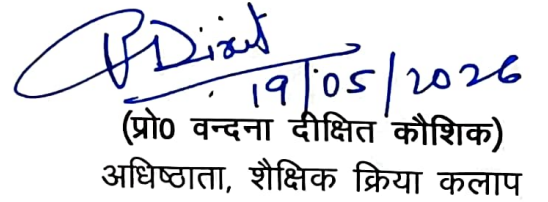 VDixit
19/05/2026
(प्रो0 वन्दना दीक्षित कौशिक)
अधिष्ठाता, शैक्षिक क्रिया कलाप